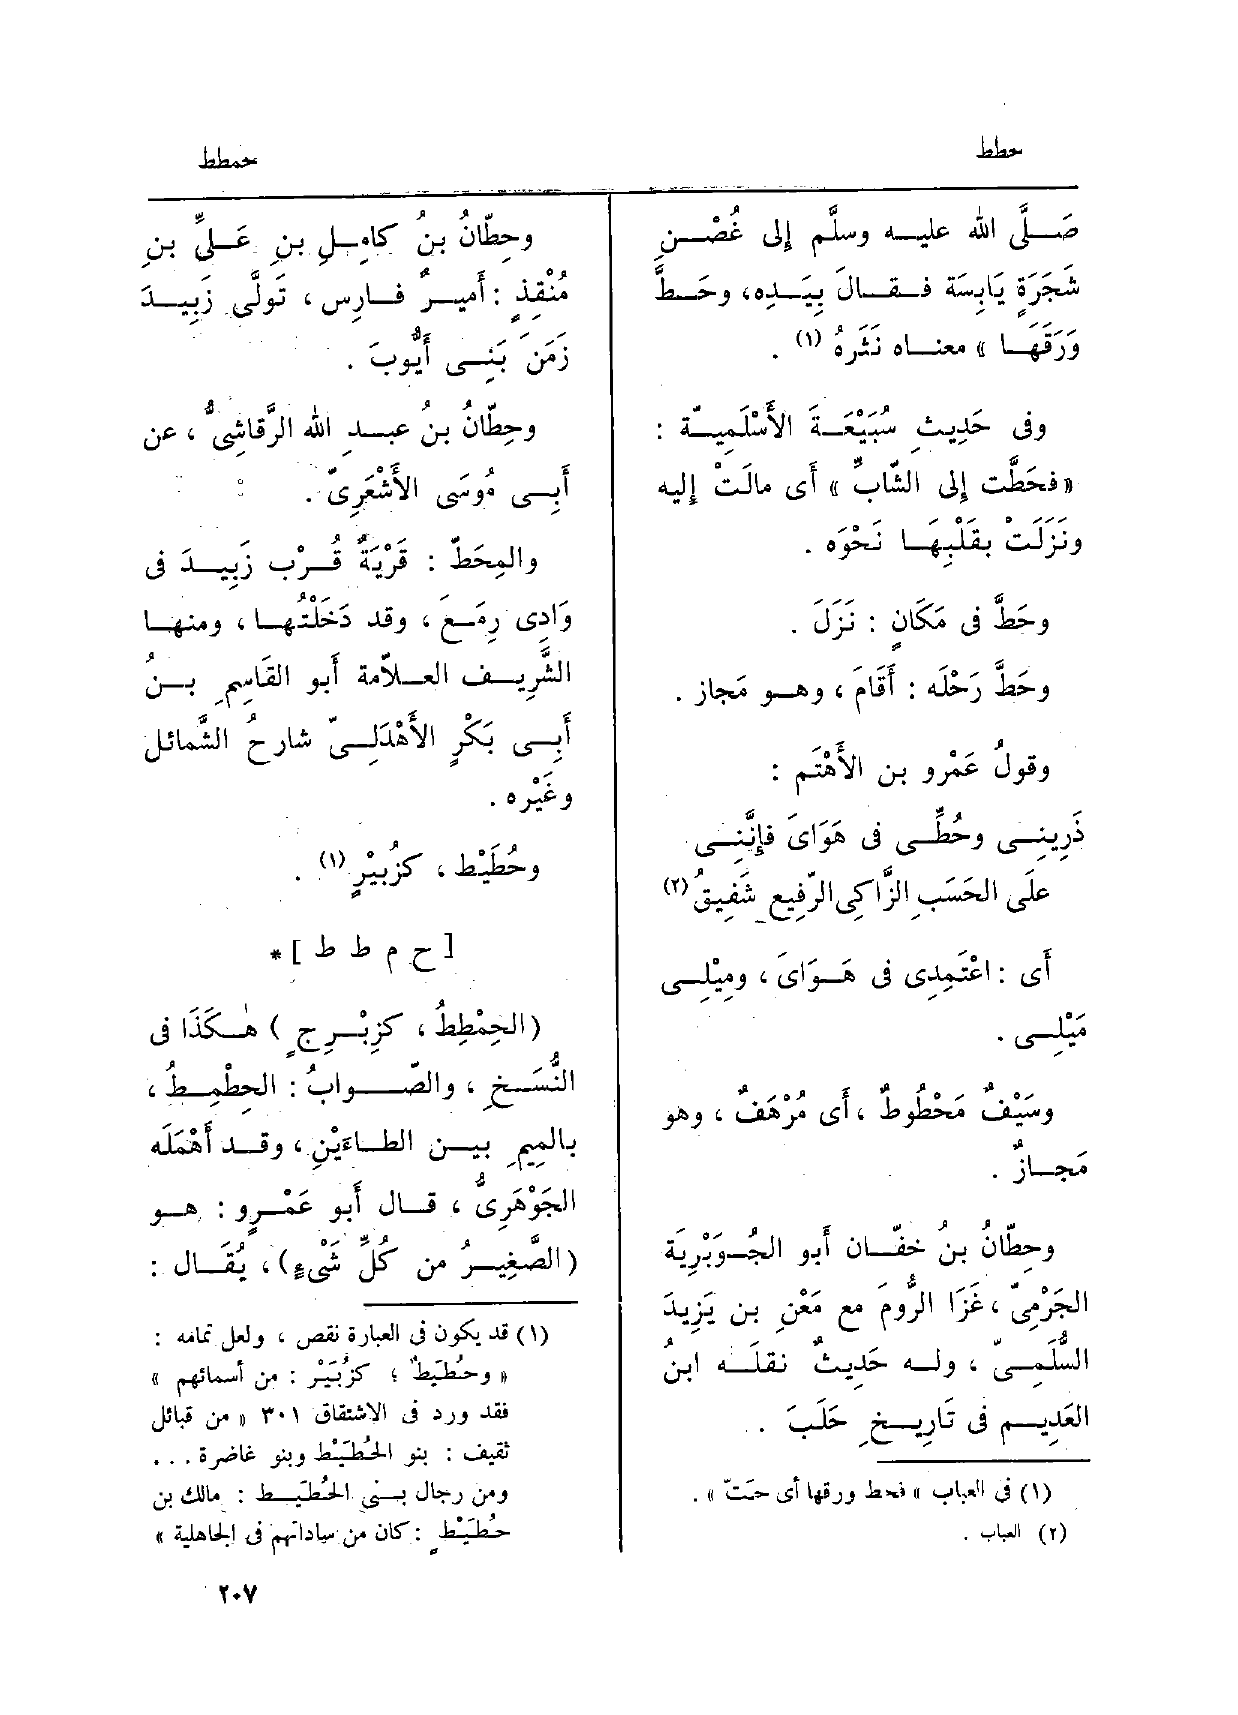 حطط
حمطط
صَلَّى الله عليه وسلَّم إلى غُصْنِ
شَجَرَةٍ يَابِسَة فقالَ بِيَدِه، وحَطَّ
وَرَقَهَا » معناه نَثَرهُ (١) .
وفى حَدِيثِ سُبَيْعَةَ الأَسْلَمِيّة :
«فحَطَّت إلى الشّابِّ » أى مالَتْ إليه
ونَزَلَتْ بقَلْبِهَا نَحْوَه .
وحَطَّ فى مَكَانٍ : نَزَلَ .
وحَطَّ رَحْلَه : أَقَامَ ، وهو مَجاز .
وقولُ عَمْرو بن الأَهْتَم :
ذَرِينِى وحُطِّى فى هَوَاىَ فإِنَّنِى
علَى الحَسَبِ الزَّاكِى الرّفِيعِ شَفِيقُ (٢)
أَى : اعْتَمِدِى فى هَوَاىَ ، ومِيْلِى
مَيْلِى .
وسَيْفٌ مَحْطُوطٌ ، أَى مُرْهَفٌ ، وهو
مَجازٌ .
وحِطّانُ بنُ خفّان أَبو الجُوَيْرِيَة
الجَرْمِىّ ، غَزَا الرُّومَ مع مَعْنِ بن يَزِيدَ
السُّلَمِىّ ، وله حَدِيثٌ نقلَه ابنُ
العَدِيم فى تَارِيخِ حَلَبَ .
(١) فى العباب « فحط ورقها أى حتّ » .
(٢) العباب .
وحِطّانُ بنُ كامِلِ بنِ عَلىِّ بنِ
مُنْقِذٍ : أَميرٌ فارِس ، تَولَّى زَبِيدَ
زَمَنَ بَنِى أَيُّوبَ .
وحِطّانُ بنُ عبدِ الله الرَّقاشىُّ ، عن
أَبِى مُوسَى الأَشْعَرِىّ .
والمِحَطّ : قَرْيَةٌ قُرْب زَبِيدَ فى
وَادِى رِمَعَ ، وقد دَخَلْتُها ، ومنها
الشَّرِيف العلاّمة أَبو القَاسِمِ بنُ
أَبِى بَكْرٍ الأَهْدَلِىّ شارحُ الشَّمائل
وغَيْرِه .
وحُطَيْط ، كزُبَيْرٍ (١) .
[ ح م ط ط ] *
(الحِمْطِطُ ، كزِبْرِجٍ ) هٰكَذَا فى
النُّسَخِ ، والصّوابُ : الحِطْمِطُ ،
بالمِيمِ بين الطاءَيْنِ ، وقد أَهْمَلَه
الجَوْهَرِىُّ ، قال أَبو عَمْرٍو : هو
(الصَّغِيرُ من كُلِّ شَىْءٍ) ، يُقَال :
(١) قد يكون فى العبارة نقص ، ولعل تمامه :
« وحُطَيْطٌ ، كزُبَيْر : من أسمائهم »
فقد ورد فى الاشتقاق ٣٠١ « من قبائل
ثقيف : بنو الحُطَيْط وبنو غاضرة ...
ومن رجال بنى الحُطَيْط : مالك بن
حُطَيْطٍ : كان من ساداتهم فى الجاهلية »
٢٠٧